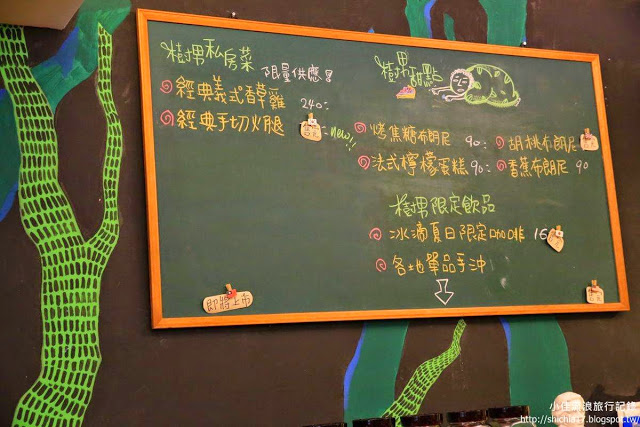 樹男私房菜
限量供應
經典義式香草雞 240
經典手切火腿
樹男甜點
new!!
烤焦糖布朗尼 90
胡桃布朗尼
法式檸檬蛋糕 90
香蕉布朗尼 90
樹男限定飲品
冰滴夏日限定咖啡 16
各地單品手沖
即將上市
小佳流浪旅行記錄
http://shichia17.blogspot.tw/